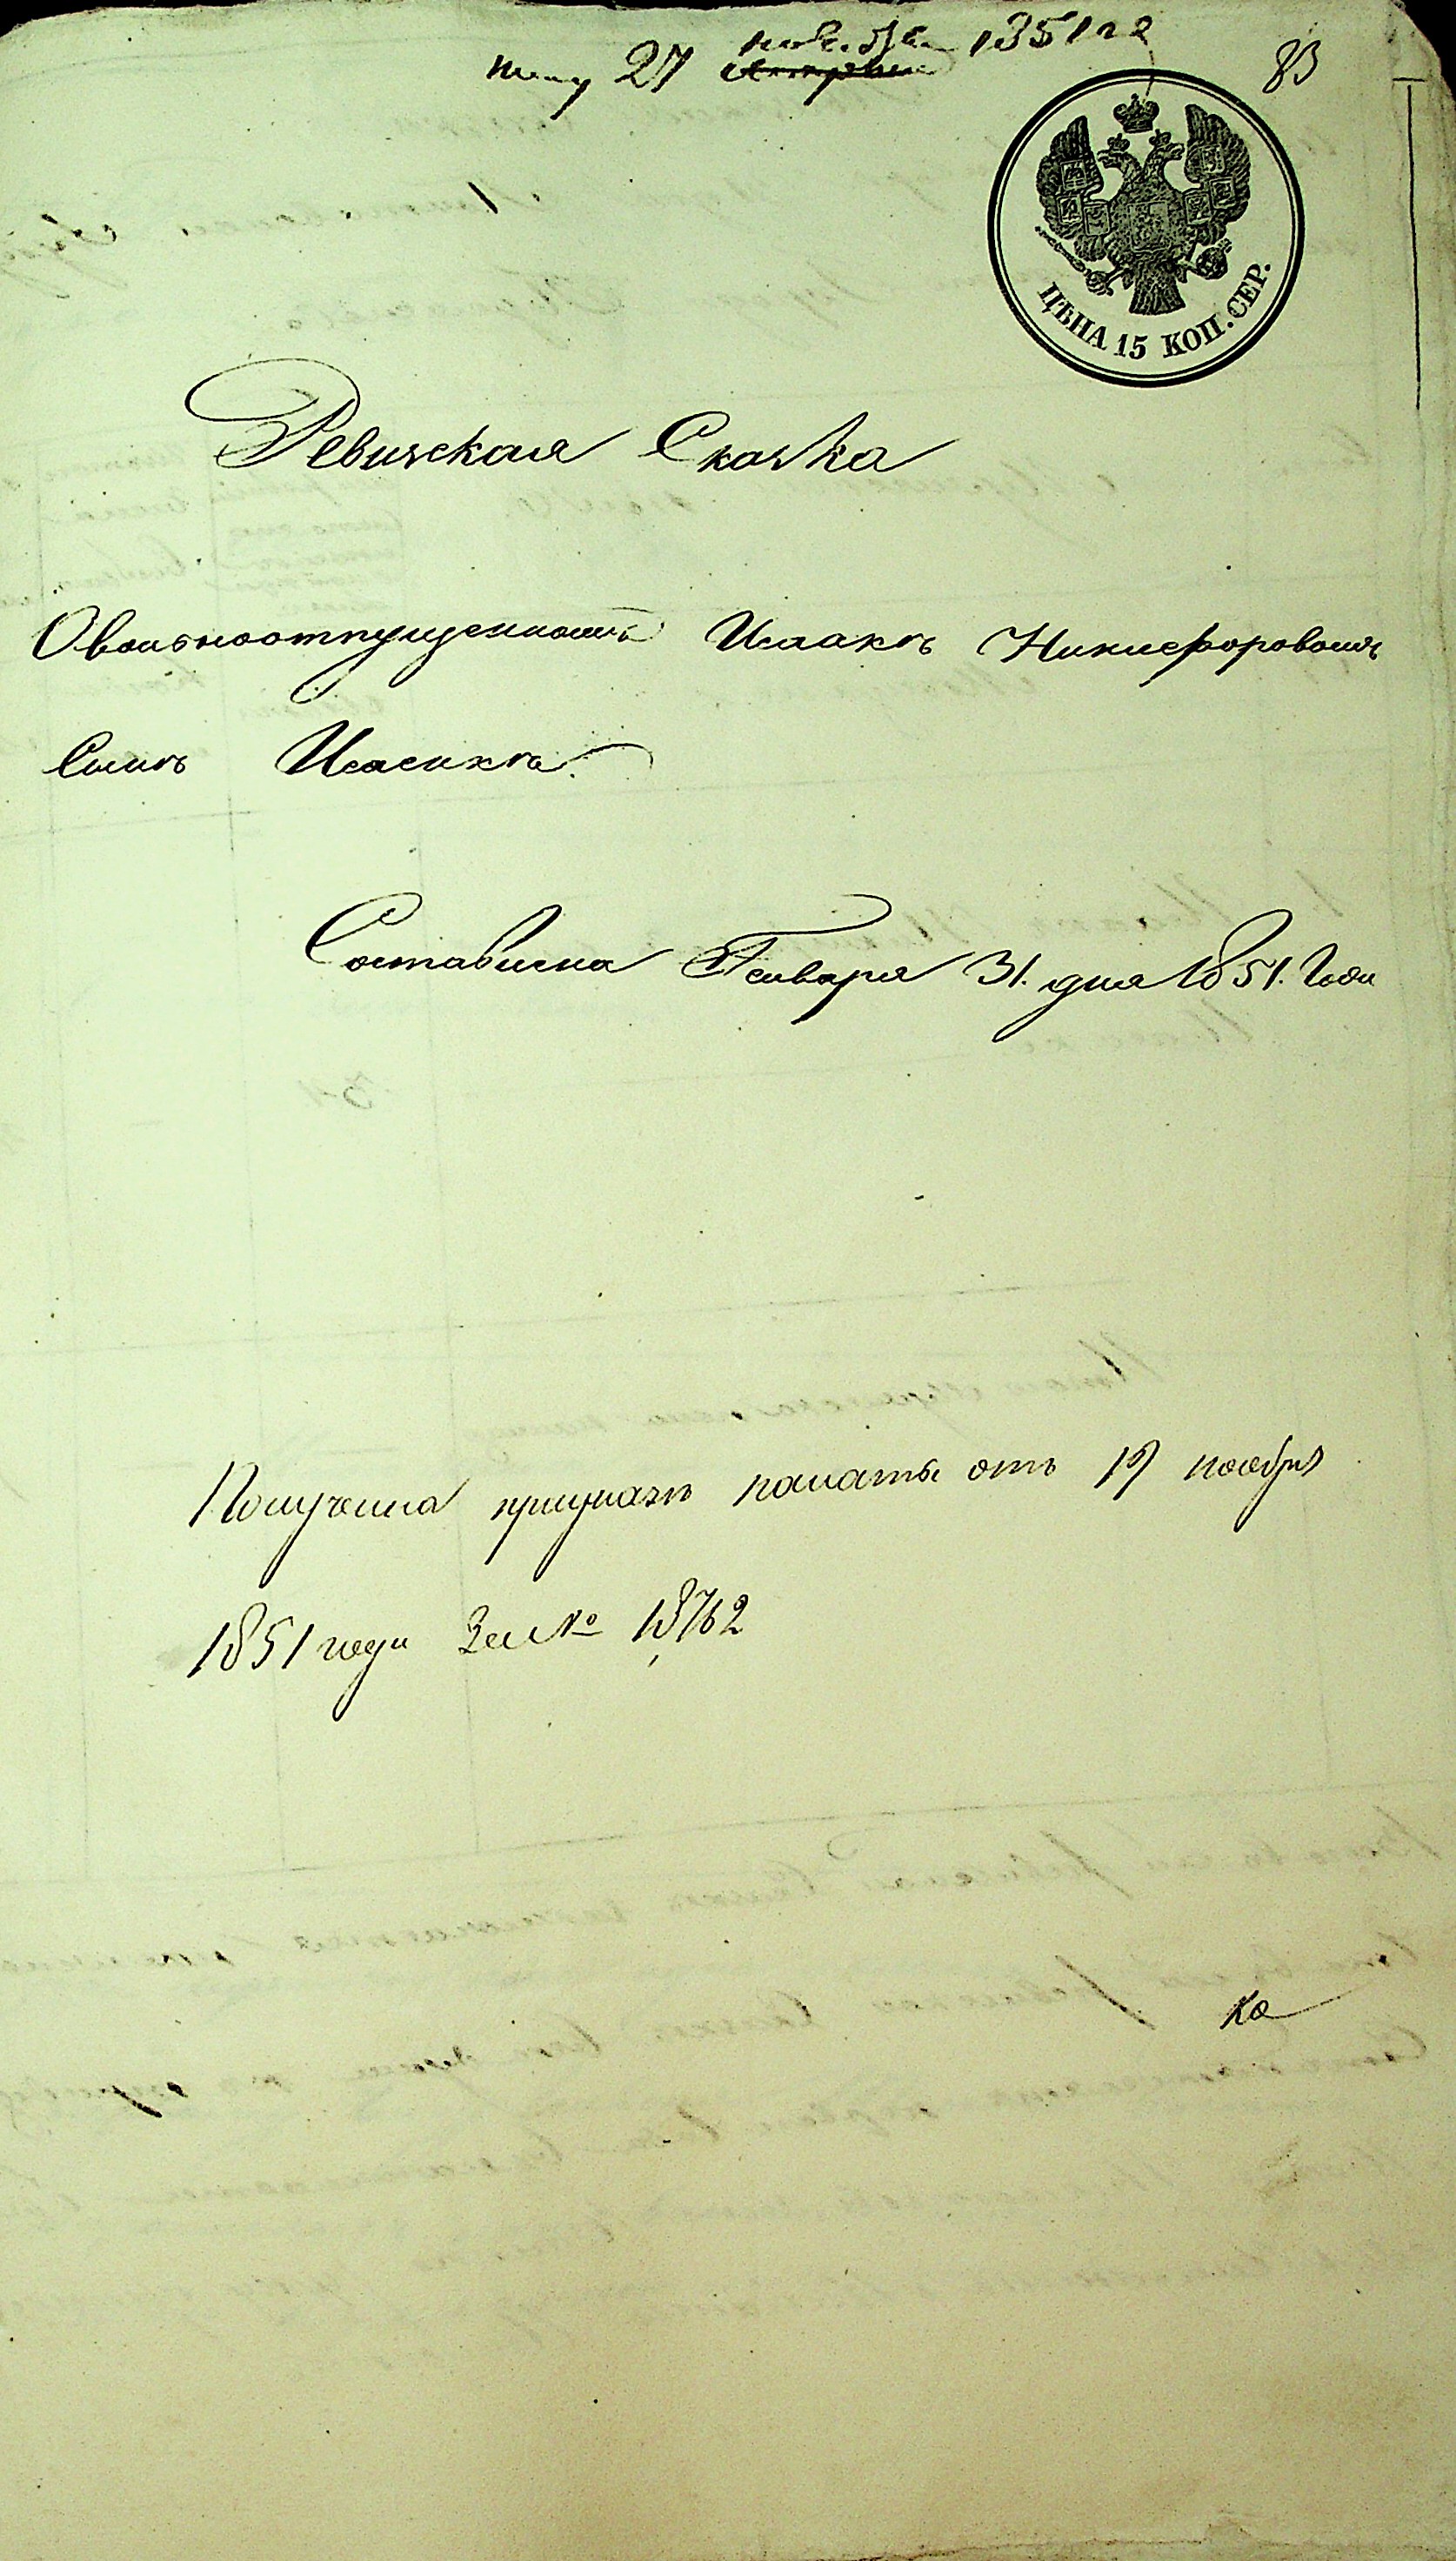 27 ноября 1851 го
83
ЦѢНА 15 КОП. СЕР.
Ревизская Сказка
О вольноотпущенномъ Исаакѣ Никифоровомъ
Сынѣ
Составлена Генваря 31. дня 1851. Года
Получена при указѣ палаты отъ 19 ноября
1851 года За № 18762
ка